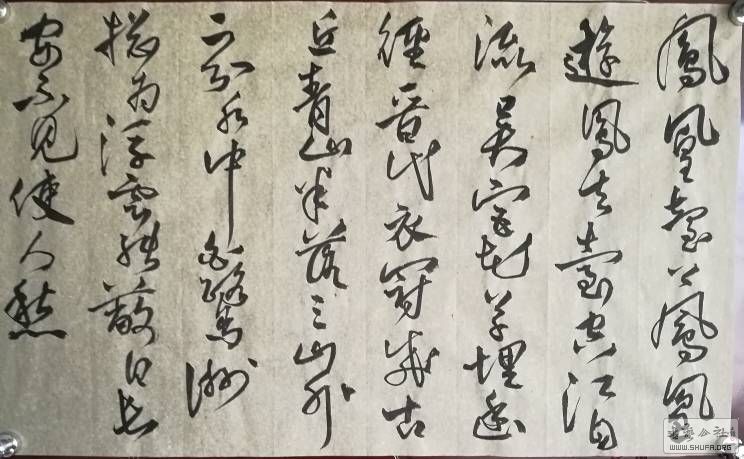 鳳凰臺上鳳凰
遊鳳去臺空江自
流吳宮花草埋幽
徑晉代衣冠成古
丘青山半落三山外
二分水中白鷺洲
總為浮雲能蔽日長
安不見使人愁
WWW.SHUFA.ORG